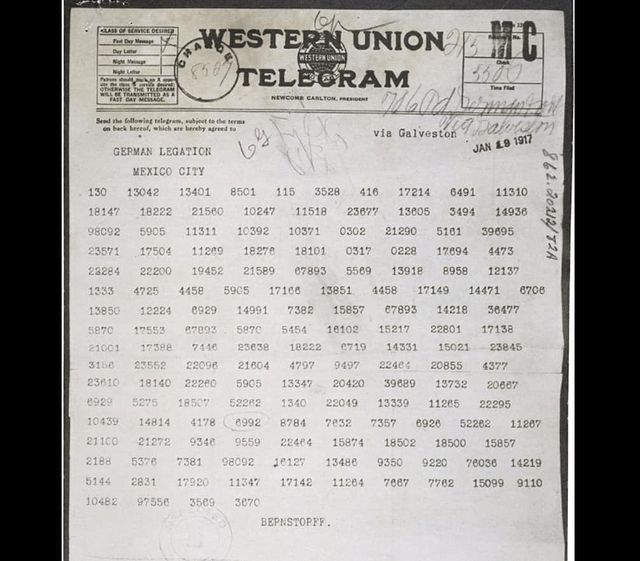 CLASS OF SERVICE DESIRED
Fast Day Message
Day Letter
Night Message
Night Letter
Patrons should mark an X oppo-
site the class of service desired;
OTHERWISE THE TELEGRAM
WILL BE TRANSMITTED AS A
FAST DAY MESSAGE.
CHARGE
WESTERN UNION
WESTERN UNION
TELEGRAM
NEWCOMB CARLTON, PRESIDENT
Check
Time Filed
Send the following telegram, subject to the terms
on back hereof, which are hereby agreed to
via Galveston
JAN 19 1917
GERMAN LEGATION
MEXICO CITY
130 13042 13401 8501 115 3528 416 17214 6491 11310
18147 18222 21560 10247 11518 23677 13605 3494 14936
98092 5905 11311 10392 10371 0302 21290 5161 39695
23571 17504 11269 18276 18101 0317 0228 17694 4473
22284 22200 19452 21589 67893 5569 13918 8958 12137
1333 4725 4458 5905 17166 13851 4458 17149 14471 6706
13850 12224 6929 14991 7382 15857 67893 14218 36477
5870 17553 67893 5870 5454 16102 15217 22801 17138
21001 17388 7446 23638 18222 6719 14331 15021 23845
3156 23552 22096 21604 4797 9497 22464 20855 4377
23610 18140 22260 5905 13347 20420 39689 13732 20667
6929 5275 18507 52262 1340 22049 13339 11265 22295
10439 14814 4178 6992 8784 7632 7357 6926 52262 11267
21100 21272 9346 9559 22464 15874 18502 18500 15857
2188 5376 7381 98092 16127 13486 9350 9220 76036 14219
5144 2831 17920 11347 17142 11264 7667 7762 15099 9110
10482 97556 3569 3670
BERNSTORFF.